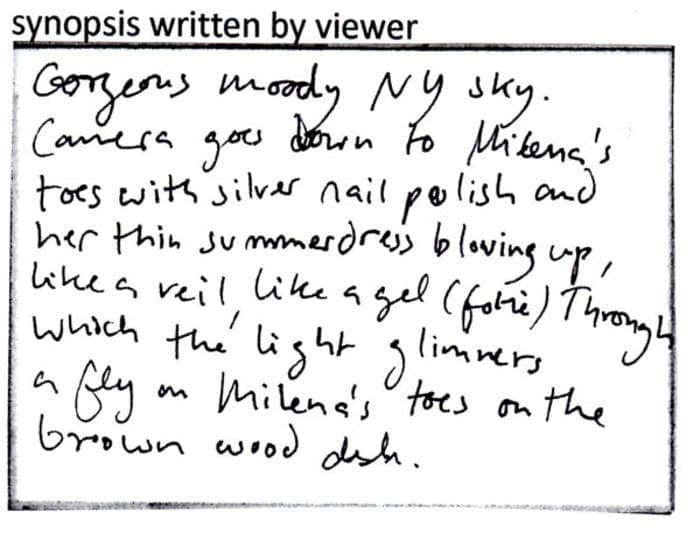 synopsis written by viewer
Gorgeous moody NY sky.
Camera goes down to Milena's
toes with silver nail polish and
her thin summerdress bloving up,
like a veil, like a gel (folie) Through
which the light glimmers
a fly on Milena's toes on the
brown wood desk.